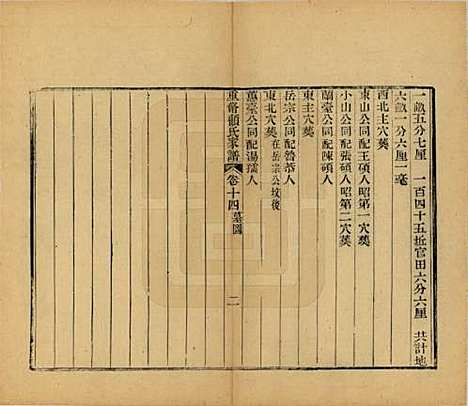 一畝五分七厘　一百四十五坵官田六分六厘　共計地
六畝一分六厘一毫
西北主穴葬
東山公同配王碩人昭第一穴葬
小山公同配張碩人昭第二穴葬
蘭臺公同配陳碩人
東主穴葬
岳宗公同配魯恭人
東北穴葬在岳宗公坟後
蕙臺公同配湯孺人
重脩顧氏家譜　卷十四墓圖　二